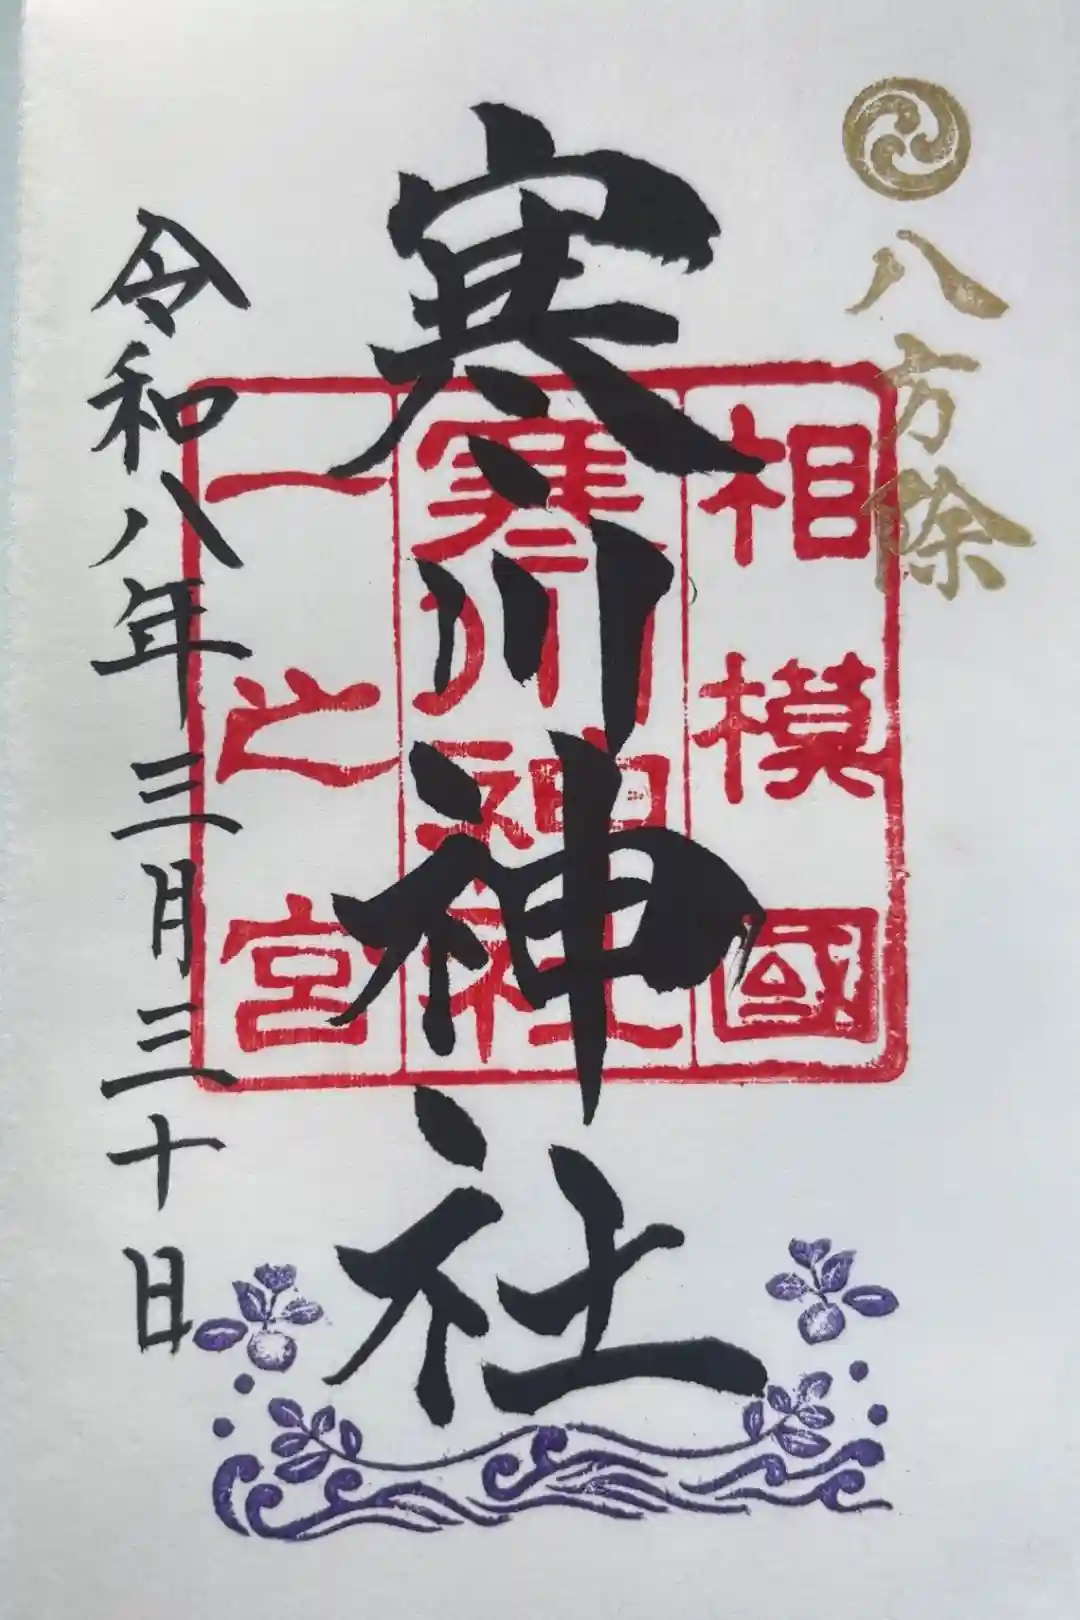 八方除
寒川神社
相模國
寒川神社
一之宮
令和八年三月三十日